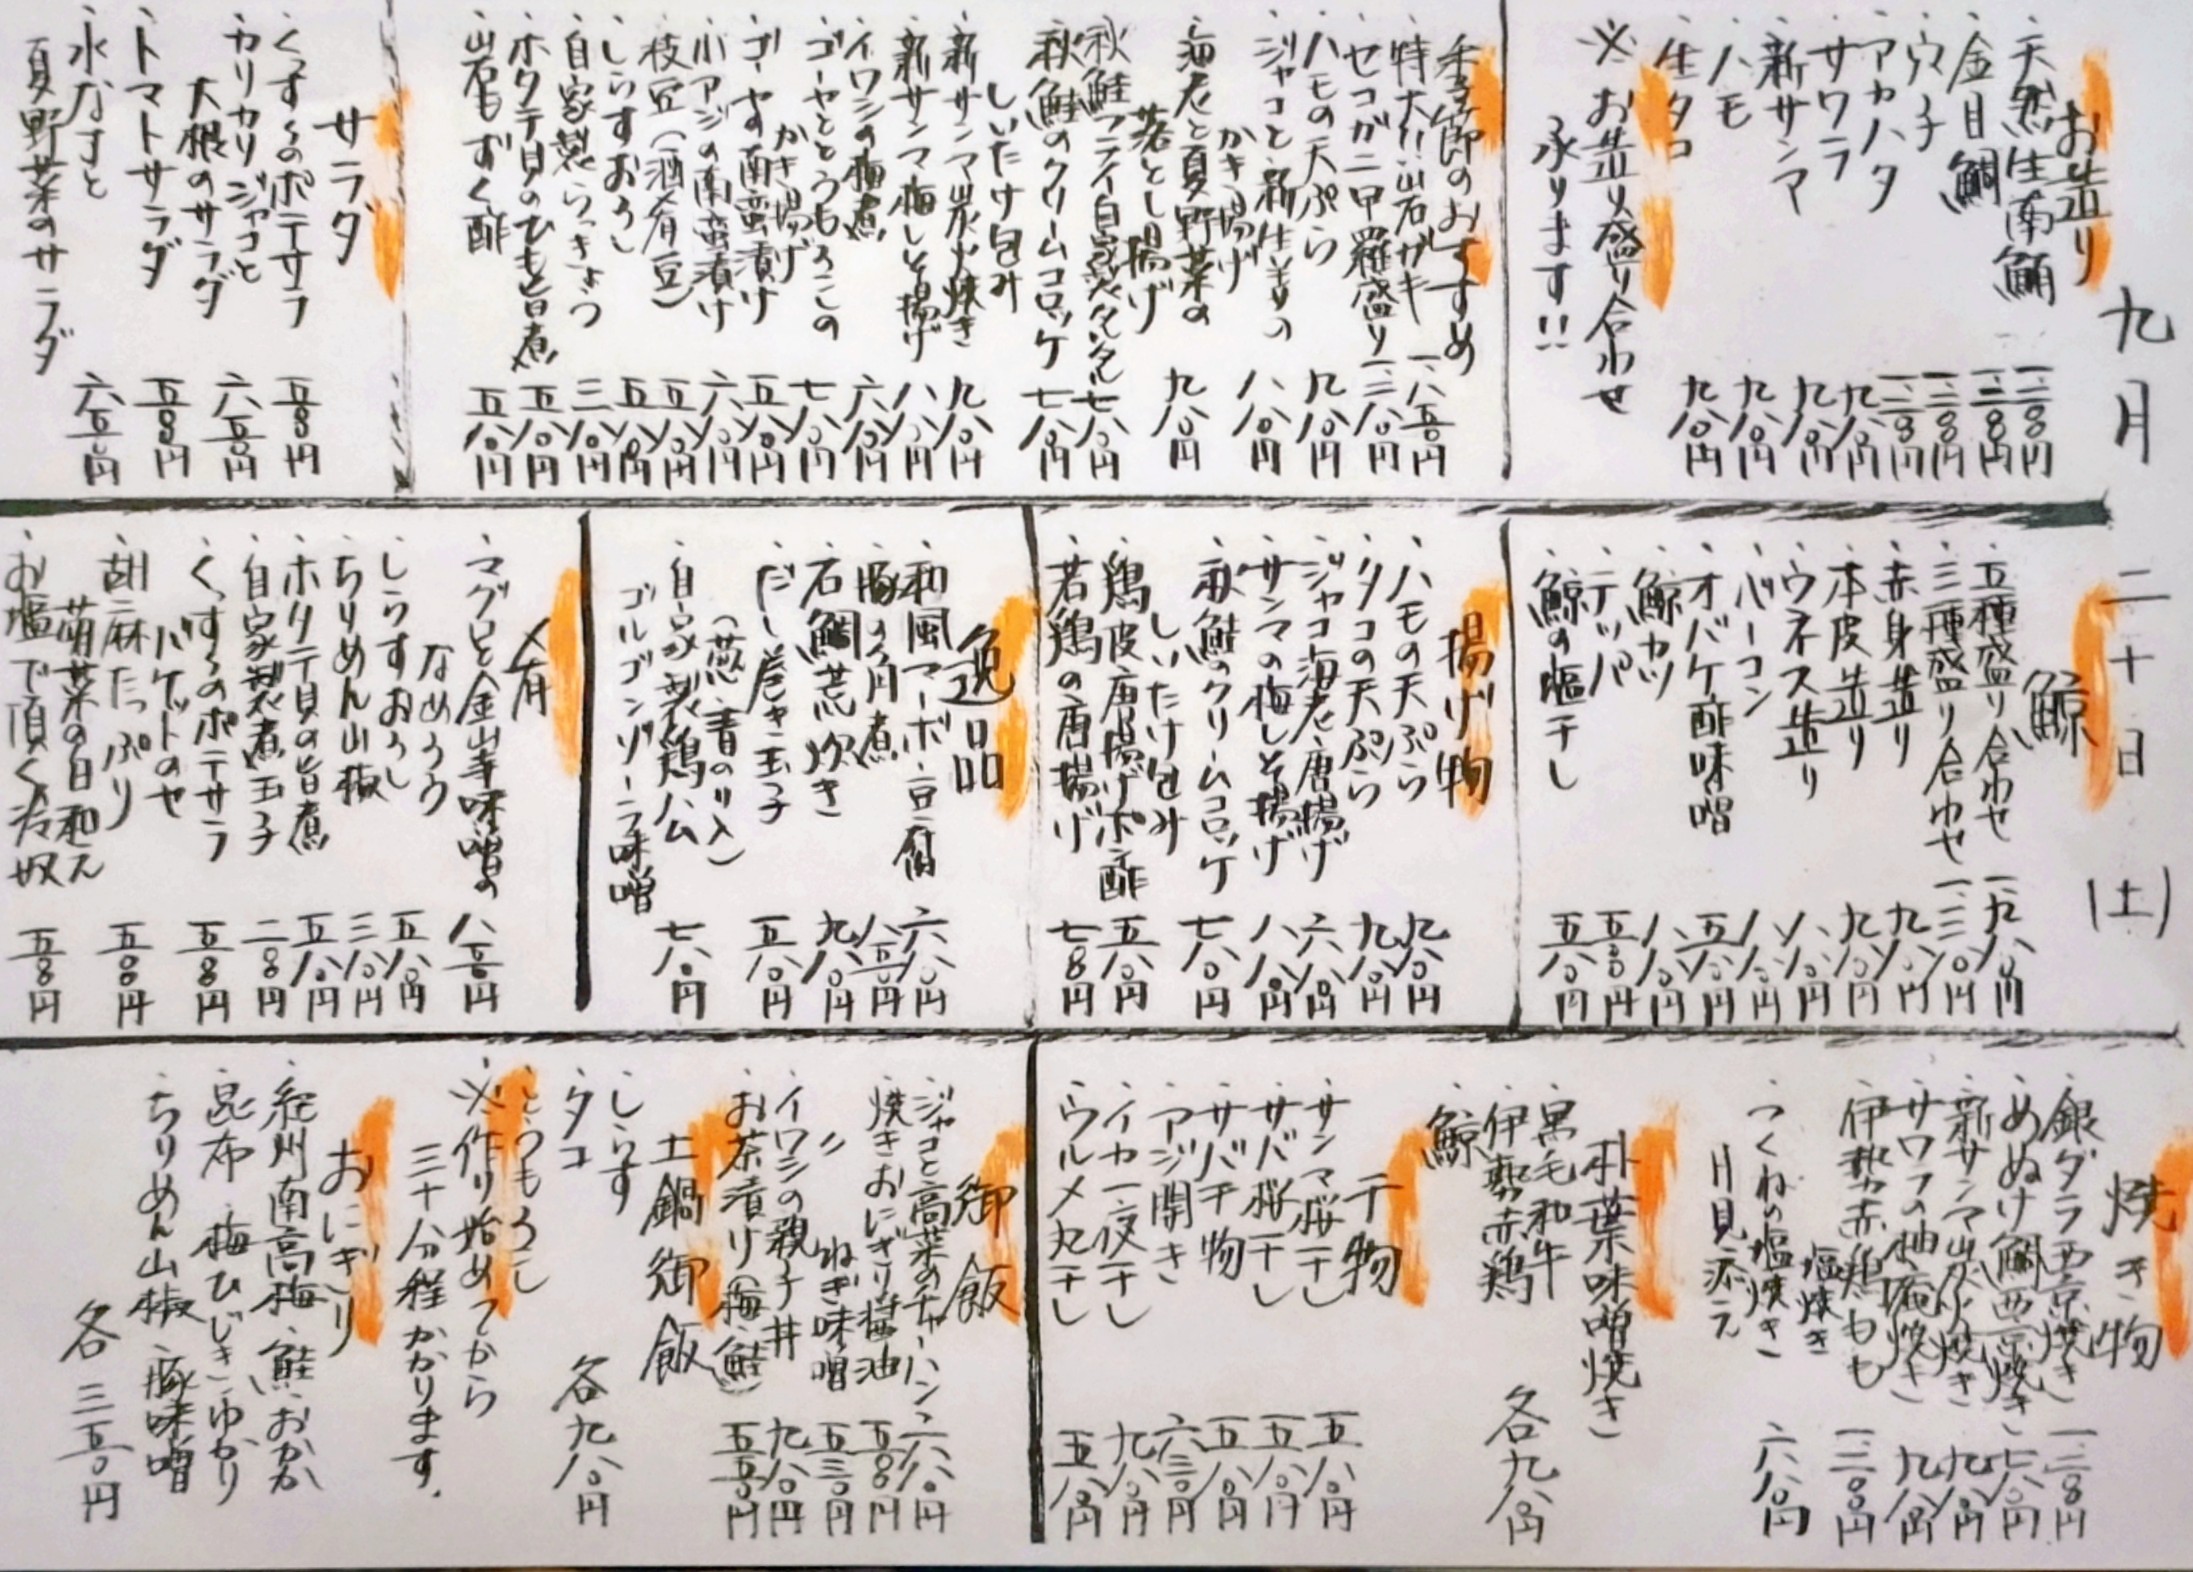 九月 二十日 (土)
お造り
・天然生南鮪 一、二〇〇円
・金目鯛 一、二〇〇円
・穴子 一、二〇〇円
・アカハタ 一、二〇〇円
・サワラ 九八〇円
・新サンマ 九八〇円
・ハモ 九八〇円
・生タコ 九八〇円
※お造り盛り合わせ
承ります!!
季節のおすすめ
・特大!!岩ガキ 一、八五〇円
・セコガニ甲羅盛り 一、三八〇円
・ハモの天ぷら 九八〇円
・ジャコと新生姜の
かき揚げ 八八〇円
・海老と夏野菜の
落とし揚げ 九八〇円
・秋鮭フライ自家製タルタル 七八〇円
・秋鮭のクリームコロッケ
しいたけ包み 七八〇円
・新サンマ炭火焼き 九八〇円
・新サンマ梅しそ揚げ 八八〇円
・イワシの梅煮 六八〇円
・ゴーヤととうもろこしの
かき揚げ 七八〇円
・ゴーヤの南蛮漬け 五八〇円
・小アジの南蛮漬け 六八〇円
・枝豆(酒肴豆) 五八〇円
・しらすおろし 五八〇円
・自家製らっきょう 三八〇円
・ホタテ貝のひも旨煮 五八〇円
・岩もずく酢 五八〇円
サラダ
・くっすくのポテサラ 五〇〇円
・カリカリジャコと
大根のサラダ 六五〇円
・トマトサラダ 五〇〇円
・水なすと
夏野菜のサラダ 六五〇円
鯨
・五種盛り合わせ 一、九八〇円
・三種盛り合わせ 一、三八〇円
・赤身造り 九八〇円
・本皮造り 九八〇円
・ウネス造り 八八〇円
・ベーコン 八八〇円
・オバケ酢味噌 五八〇円
・鯨カツ 八八〇円
・テッパ 五五〇円
・鯨の塩干し 五八〇円
揚げ物
・ハモの天ぷら 九八〇円
・タコの天ぷら 九八〇円
・ジャコ海老唐揚げ 六八〇円
・サンマの梅しそ揚げ 八八〇円
・秋鮭のクリームコロッケ
しいたけ包み 七八〇円
・鶏皮唐揚げポン酢 五八〇円
・若鶏の唐揚げ 七〇〇円
逸品
・和風マーボー豆腐 六八〇円
・豚の角煮 八五〇円
・石鯛荒炊き 九八〇円
・だし巻き玉子
(葱・青のり入) 五八〇円
・自家製鶏ハム
ゴルゴンゾーラ味噌 七八〇円
肴
・マグロと金山寺味噌の
なめろう 八五〇円
・しらすおろし 五八〇円
・ちりめん山椒 三八〇円
・ホタテ貝の旨煮 五八〇円
・自家製煮玉子 二〇〇円
・くっすくのポテサラ
バゲットのせ 五〇〇円
・胡麻たっぷり
菊菜の白和え 五〇〇円
・お塩で頂く冷奴 五〇〇円
焼き物
・銀ダラ西京焼き 一、二〇〇円
・めぬけ鯛西京焼き 七八〇円
・新サンマ炭火焼き 九八〇円
・サワラの柚庵焼き 九八〇円
・伊勢赤鶏もも
塩焼き 一、三〇〇円
・つくねの塩焼き
月見添え 六八〇円
朴葉味噌焼き
・黒毛和牛
・伊勢赤鶏
・鯨 各九八〇円
干物
・サンマ桜干し 五八〇円
・サバ桜干し 五八〇円
・サバ干物 五八〇円
・アジ開き 六三〇円
・イカ一夜干し 九八〇円
・ウルメ丸干し 五八〇円
御飯
・ジャコと高菜のチャーハン 六八〇円
・焼きおにぎり醤油 五〇〇円
・〃 ねぎ味噌 五三〇円
・イワシの親子丼 九八〇円
・お茶漬け(梅・鮭) 五五〇円
土鍋御飯
・しらす
・タコ
・とうもろこし
各九八〇円
※作り始めてから
三十分程かかります.
おにぎり
・紀州南高梅・鮭・おかか
・昆布・梅ひじき・ゆかり
・ちりめん山椒・豚味噌
各三五〇円